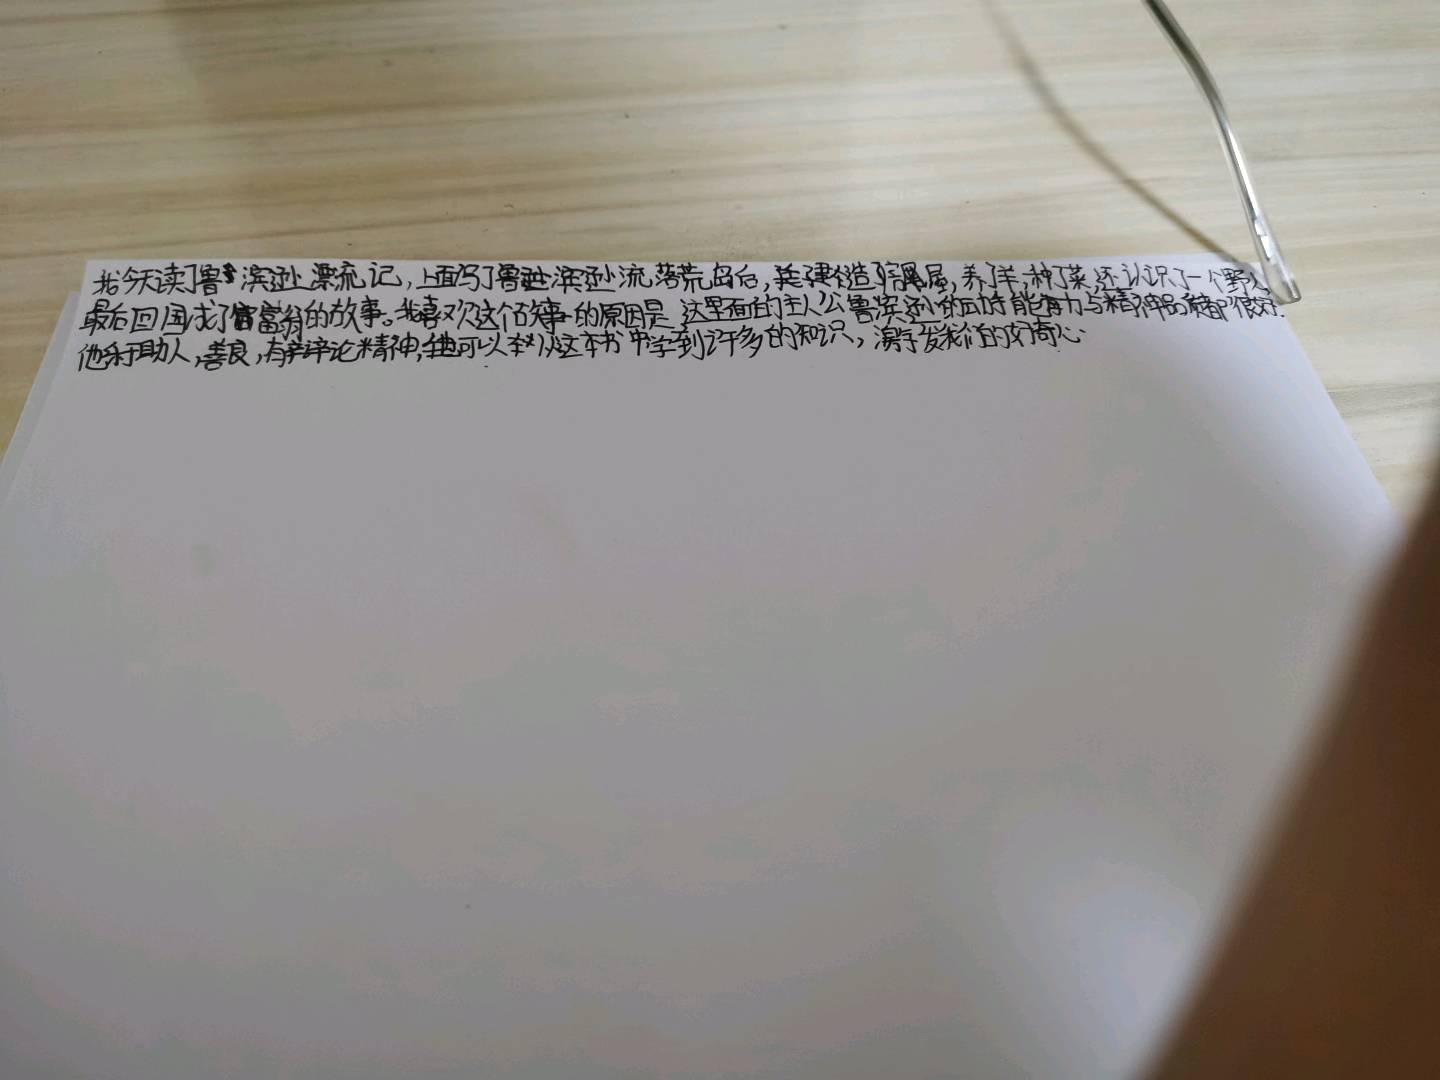 我今天读了鲁滨逊漂流记,上面写了鲁滨逊流落荒岛后,建造了房屋,养了羊,种了菜,还认识了一个野人
最后回国成了富翁的故事。我喜欢这个故事的原因是这里面的主人公鲁滨逊的动手能力与精神品质都很好.
他乐于助人,善良,有辩论精神,也可以从这本书中学到许多的知识,激发我们的好奇心